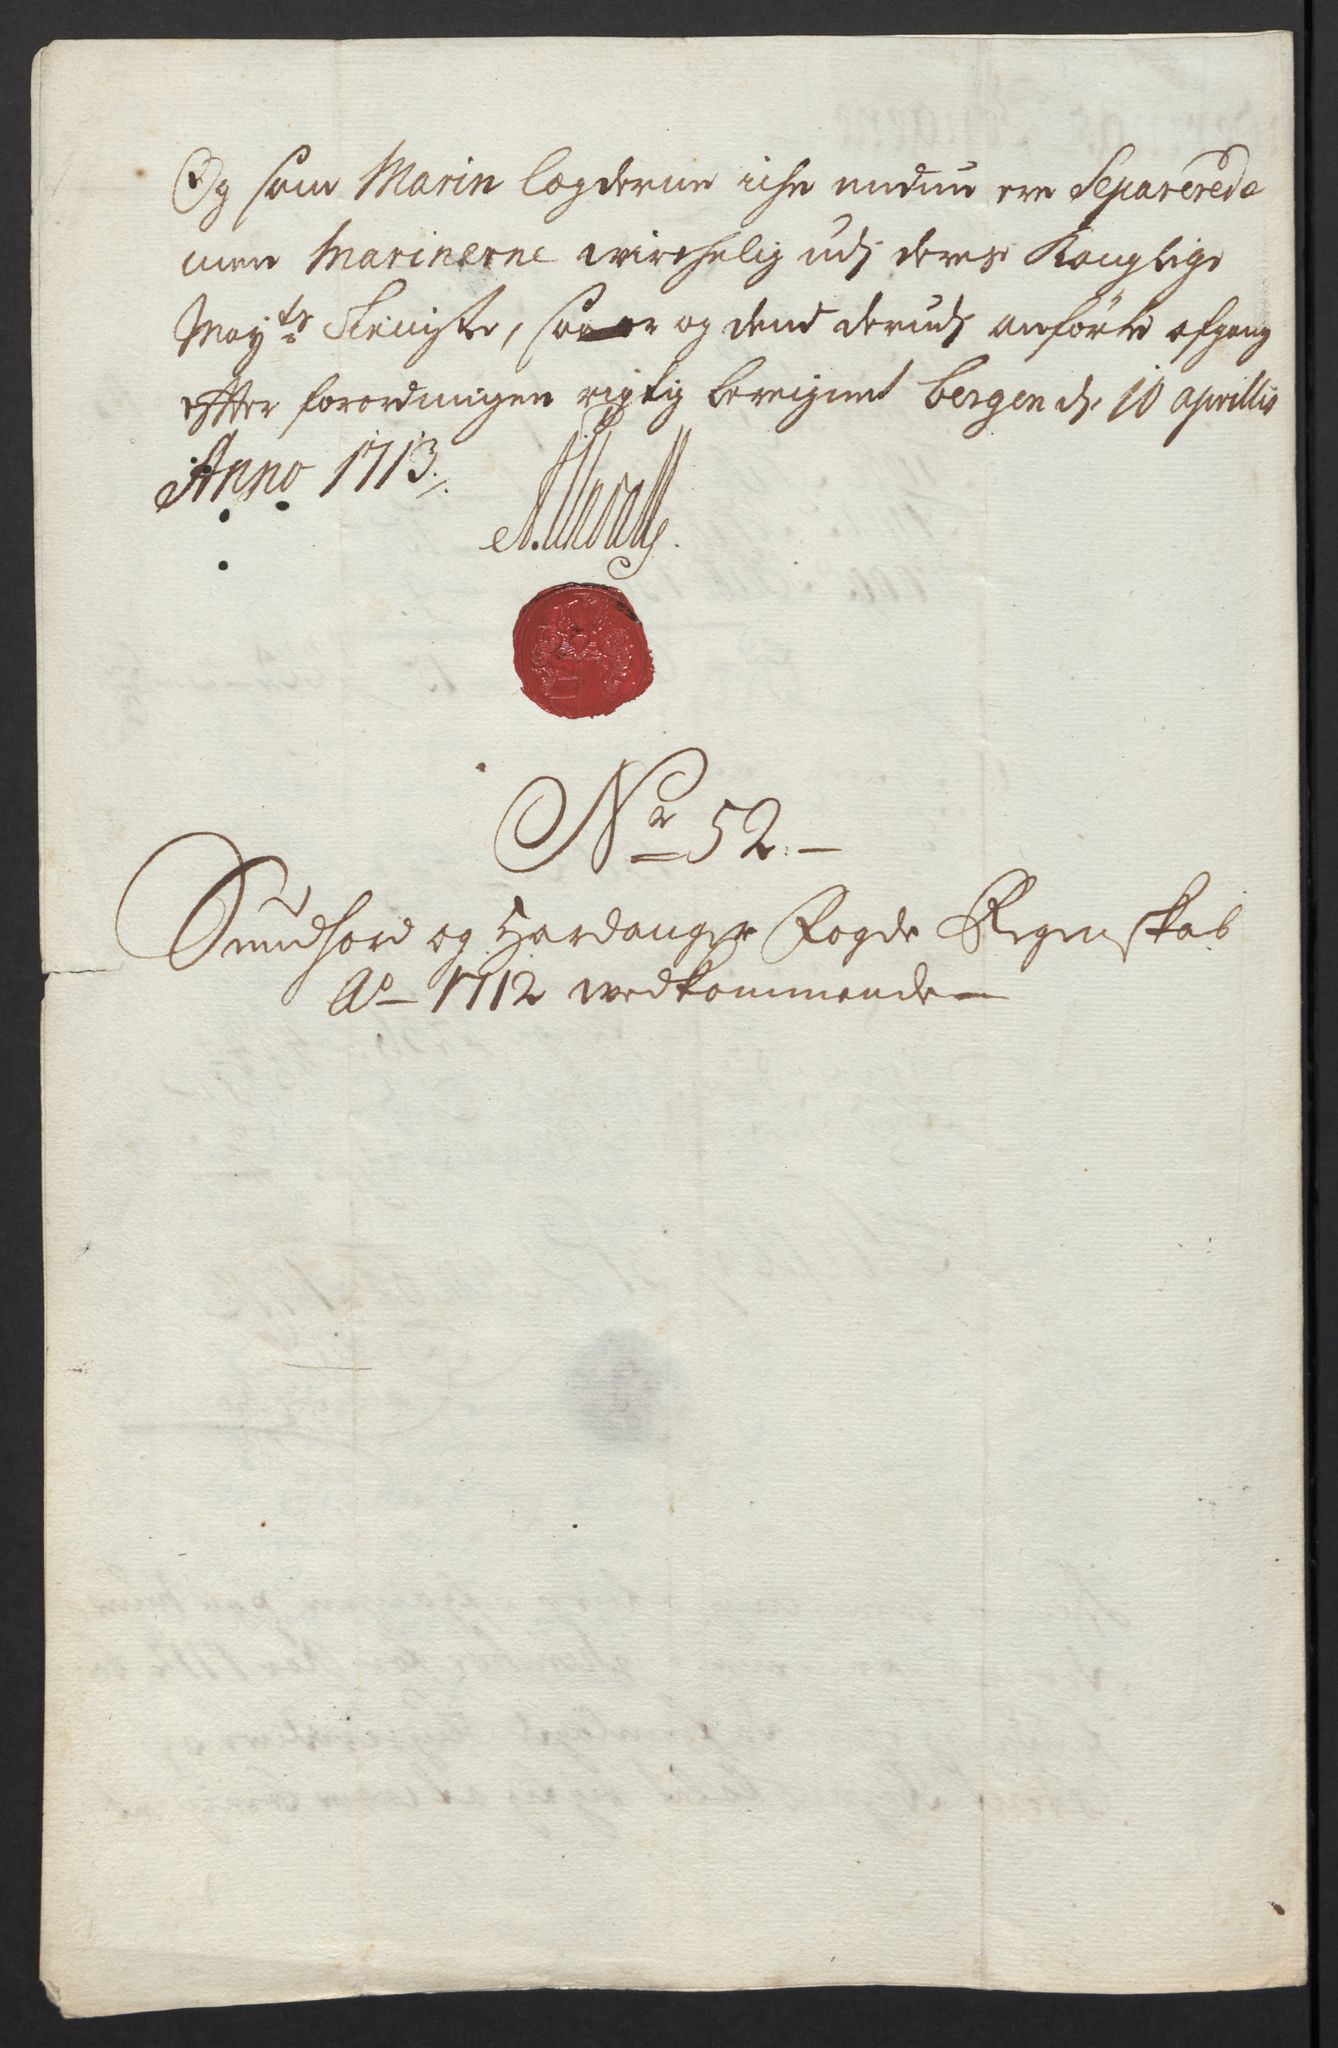 Og som Marin lægderne iche endnu ere Separerede
men Marinerne wirchelig udj deres Konglige
Mayts Tieniste, saa er og dend derudj anførte afgang
effter forordningen rigtig bereignet bergen d. 10 aprillis
Anno 1713.
No 52.
Sundhord og Hardanger Fogde Regenskab
Ao 1712 wedkommende